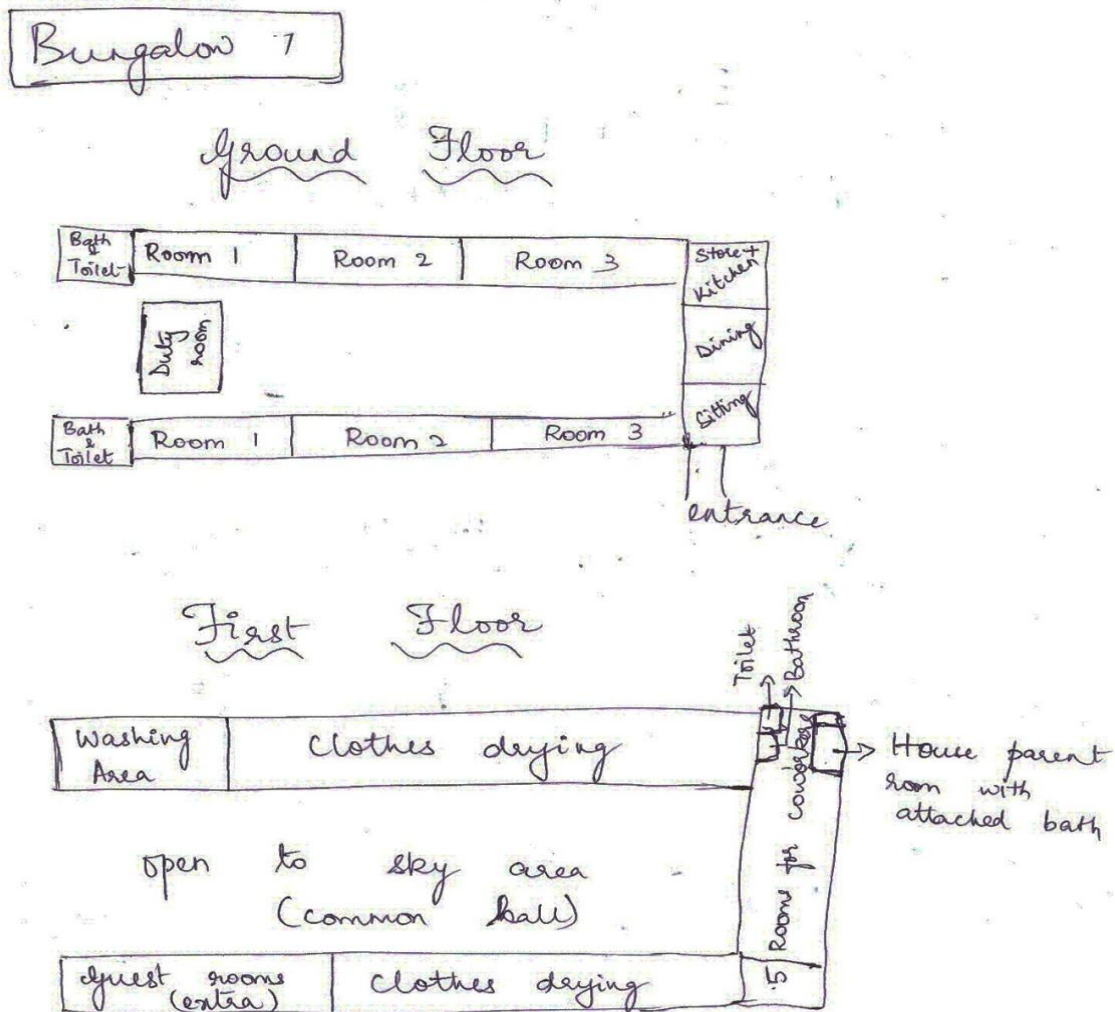 Bungalow 7
Ground Floor
Bath & Toilet
Room 1
Room 2
Room 3
Store + Kitchen
Duty room
Dining
Sitting
Bath & Toilet
Room 1
Room 2
Room 3
entrance
First Floor
Toilet
Bathroom
Washing Area
Clothes drying
5 Rooms for coworkers
House parent
room with
attached bath
open to sky area
(common hall)
Guest rooms
(extra)
Clothes drying